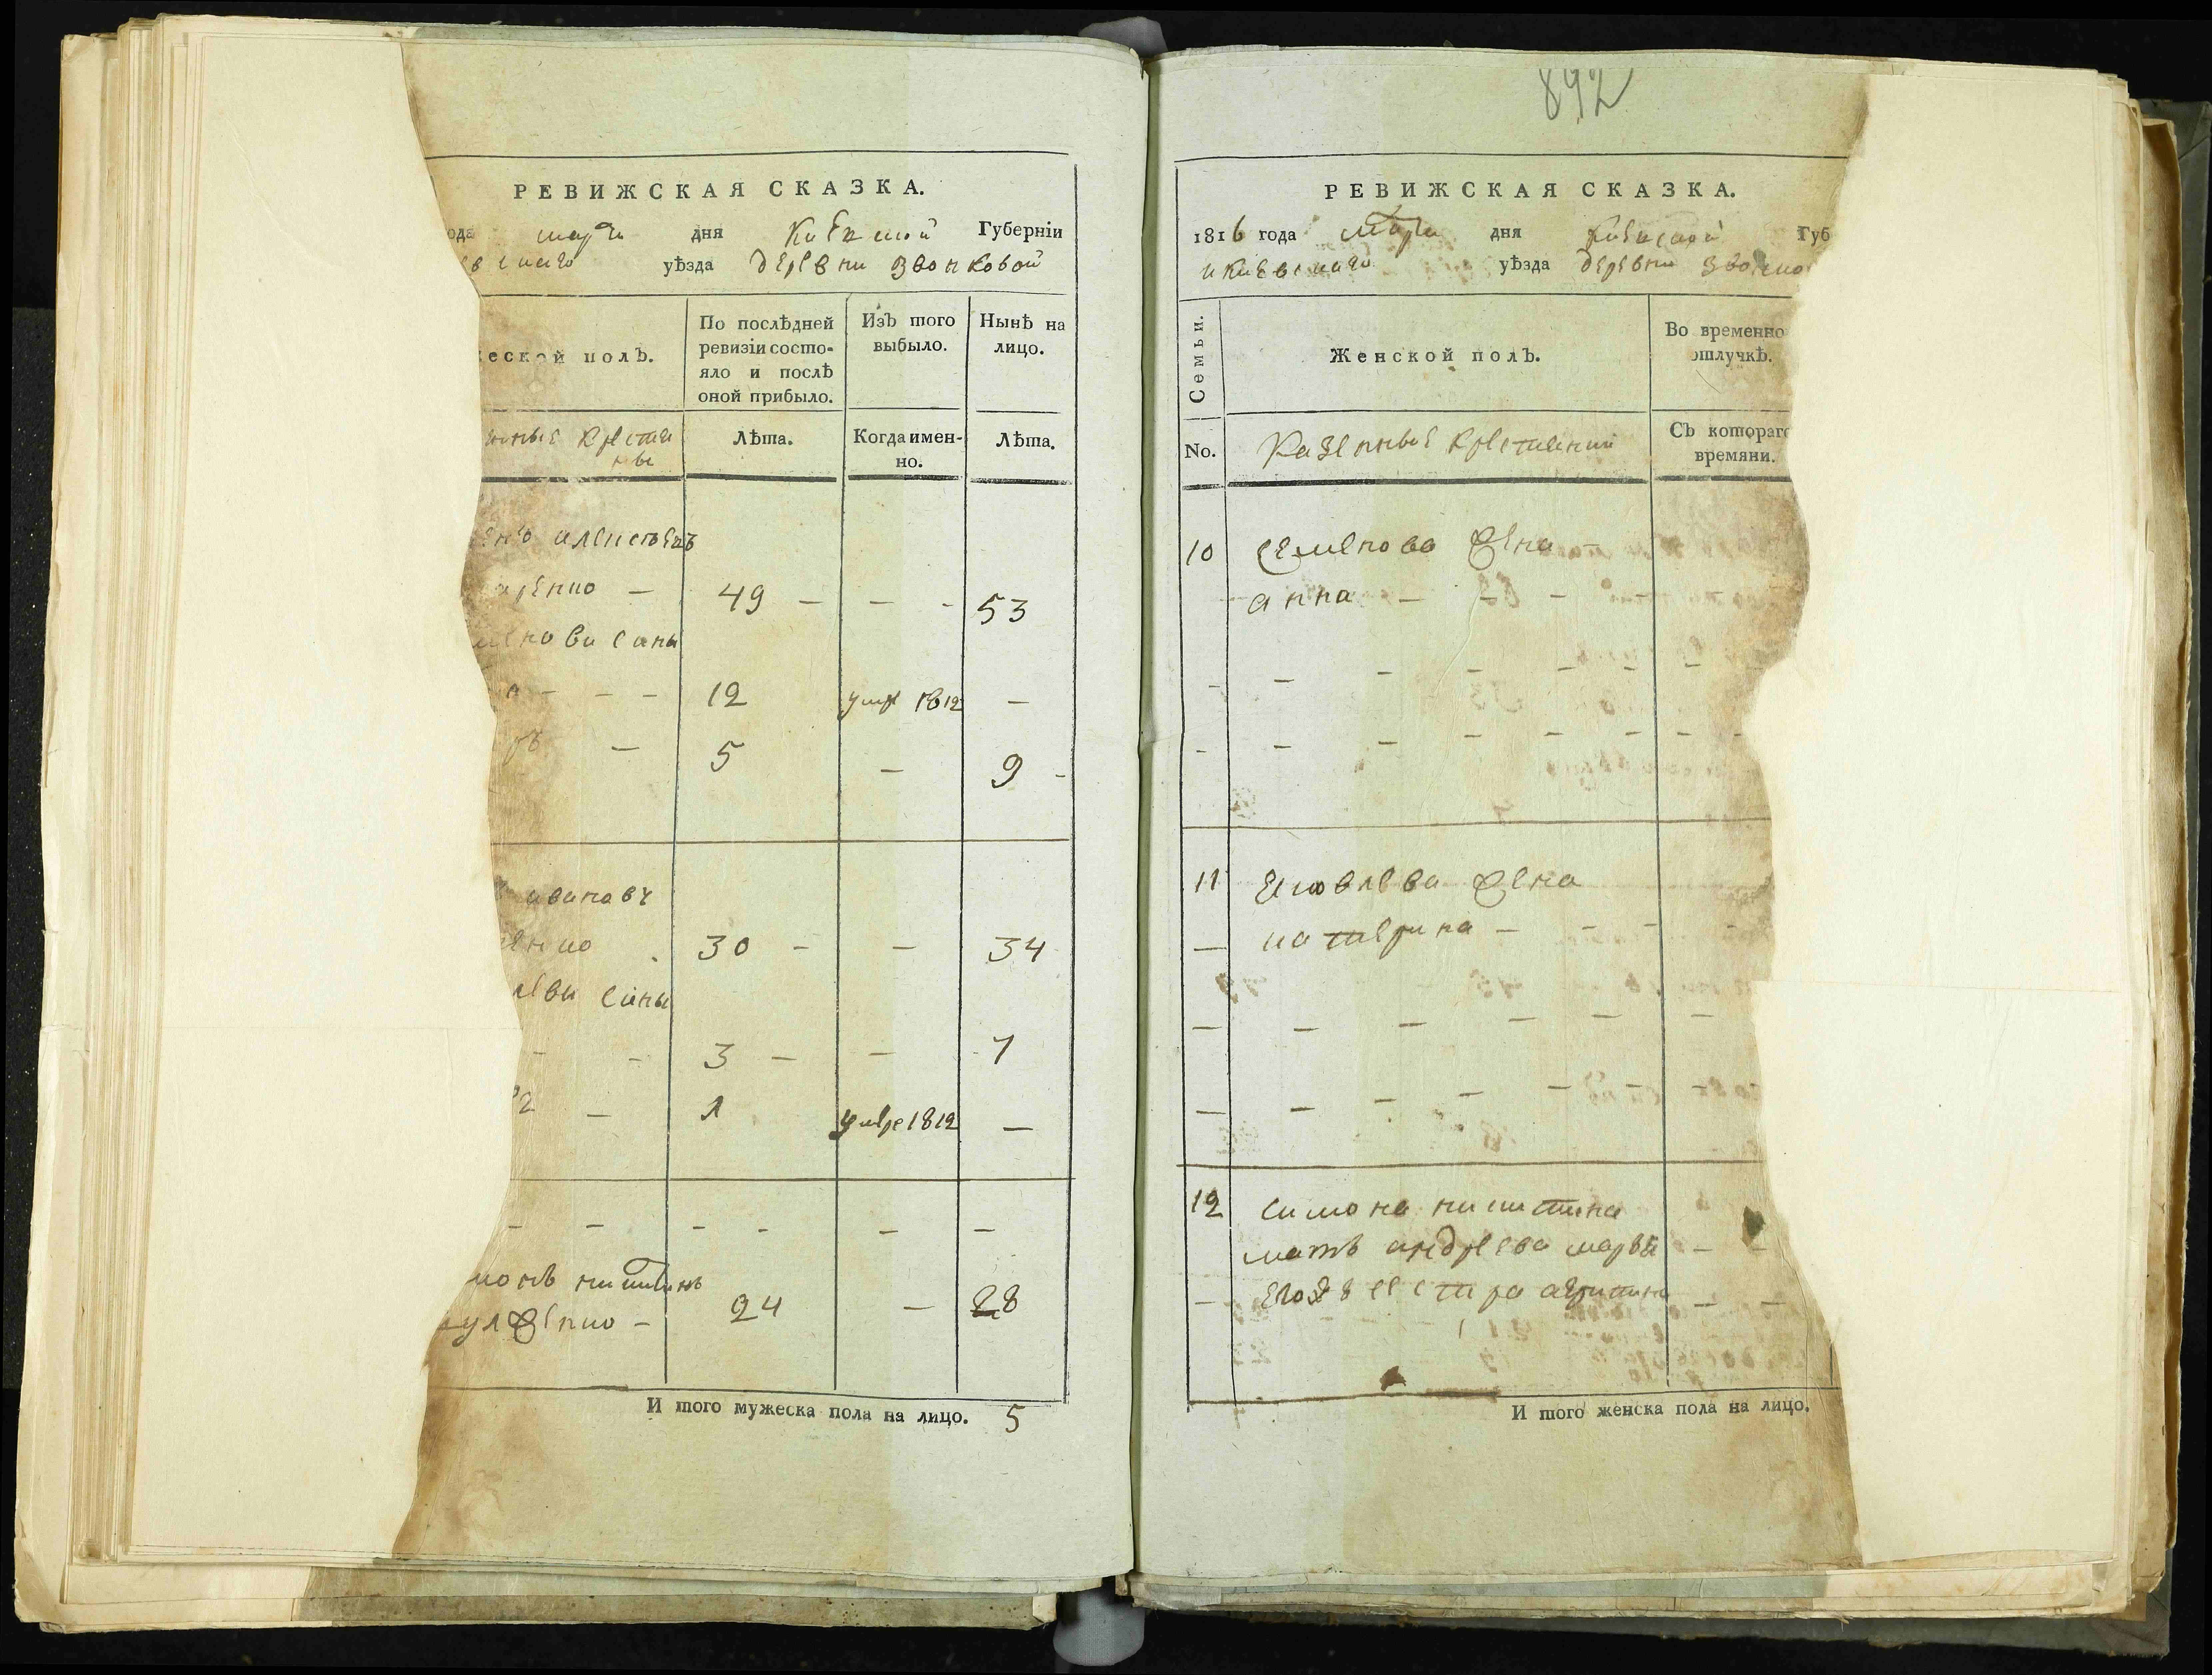 РЕВИЖСКАЯ СКАЗКА.
ода марта дня Киевской Губерніи
уѣзда деревни Звонковой
еской полъ.
По послѣдней ревизіи состо-яло и послѣ оной прибыло.
Изъ того выбыло.
Нынѣ на лицо.
Лѣта.
Когда имен-но.
Лѣта.
енъ алексѣевъ
аренко — 49 — — - 53
менови сины
- - - 12 умре 1812 —
ръ — 5 — 9 -
ъ ивановъ
енко . 30 - — 34
леви сины
- - 3 — — 7
— 1 умре 1812 —
- - - - — —
монъ никитинъ
улженко — 24 — 28
И того мужеска пола на лицо. 5
892
РЕВИЖСКАЯ СКАЗКА.
1816 года марта дня Киевской Губ
киевскаго уѣзда деревни Звонко
Семьи.
Женской полъ.
Во временно отлучкѣ.
No.
Казенные крестянки
Съ котораго времяни.
10 Семенова жена
анна — - -
11 Яковлева жена
— катерина — - -
12 Симона никитина
мать андреева марья — -
— его же сестра — —
И того женска пола на лицо.